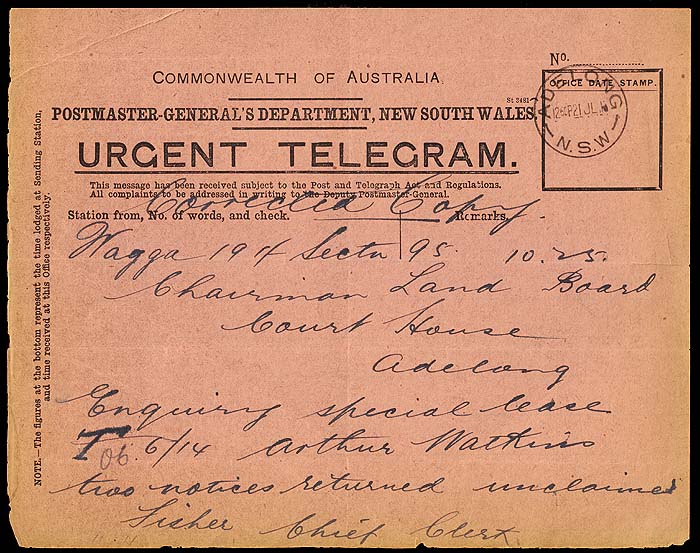 No.
COMMONWEALTH OF AUSTRALIA.
St 2481
POSTMASTER-GENERAL'S DEPARTMENT, NEW SOUTH WALES.
OFFICE DATE STAMP.
ADELONG
21 JL
N.S.W
URGENT TELEGRAM.
This message has been received subject to the Post and Telegraph Act and Regulations.
All complaints to be addressed in writing to the Deputy Postmaster-General.
Corrected Copy.
Station from, No. of words, and check. Remarks.
Wagga 194 95 10.25
Chairman Land Board
Court House
Adelong
Enquiry special lease
T 06. 6/14 Arthur Watkins
two notices returned unclaimed
Fisher Chief Clerk
NOTE.—The figures at the bottom represent the time lodged at Sending Station,
and time received at this Office respectively.